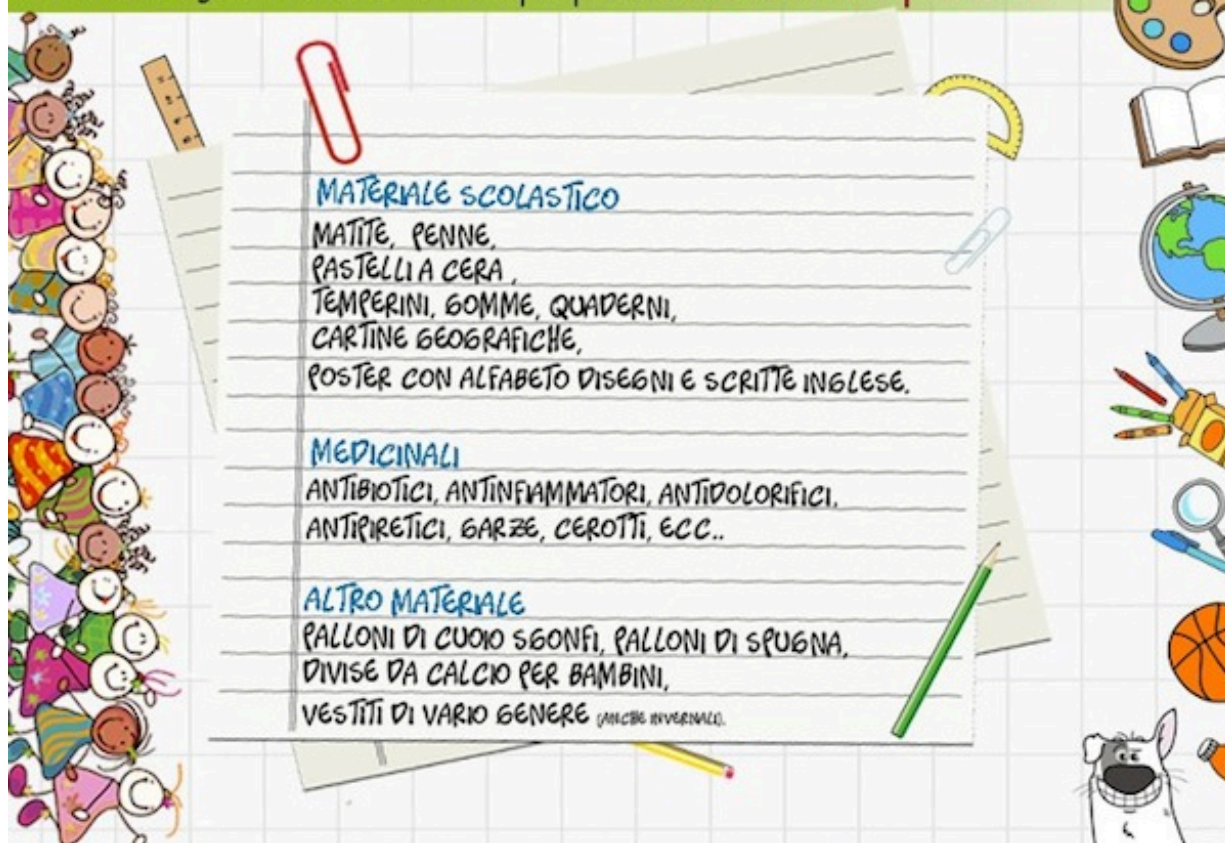 MATERIALE SCOLASTICO
MATITE, PENNE,
PASTELLI A CERA,
TEMPERINI, GOMME, QUADERNI,
CARTINE GEOGRAFICHE,
POSTER CON ALFABETO DISEGNI E SCRITTE INGLESE.
MEDICINALI
ANTIBIOTICI, ANTINFIAMMATORI, ANTIDOLORIFICI,
ANTIPIRETICI, GARZE, CEROTTI, ECC..
ALTRO MATERIALE
PALLONI DI CUOIO SGONFI, PALLONI DI SPUGNA,
DIVISE DA CALCIO PER BAMBINI,
VESTITI DI VARIO GENERE (ANCHE INVERNALI).